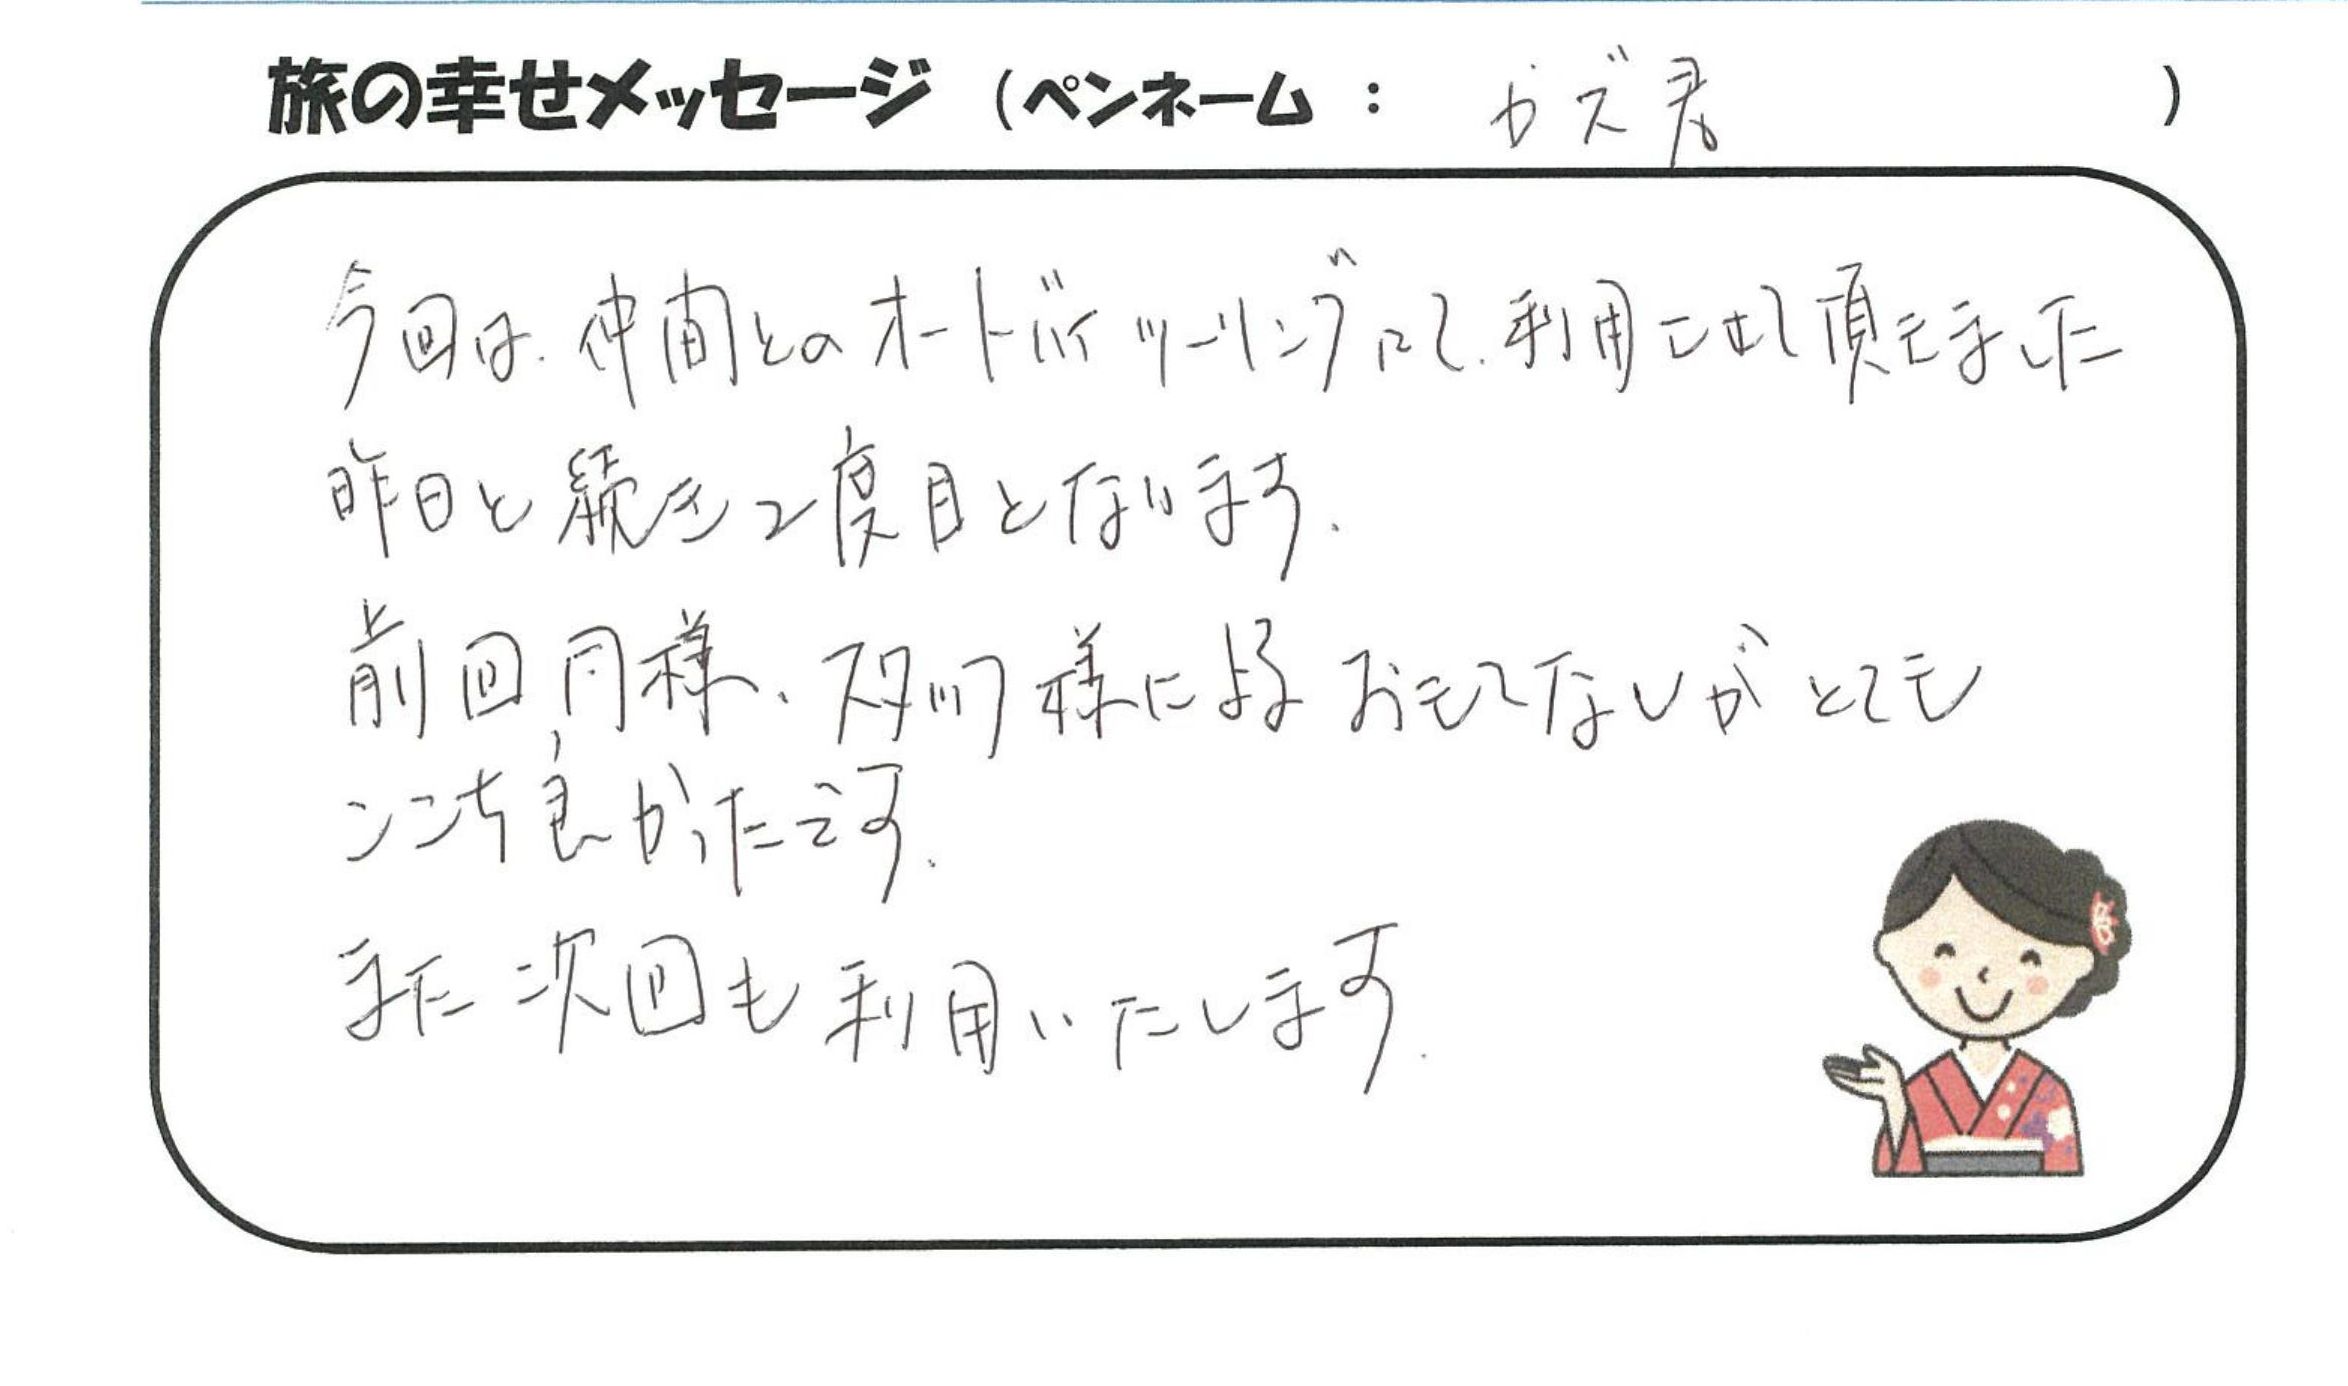 旅の幸せメッセージ (ペンネーム : カズ君 )
今回は、仲間とのオートバイツーリングにて、利用させて頂きました
昨日と続き2度目となります.
前回同様、スタッフ様によるおもてなしがとても
ここち良かったです.
また次回も利用いたします.